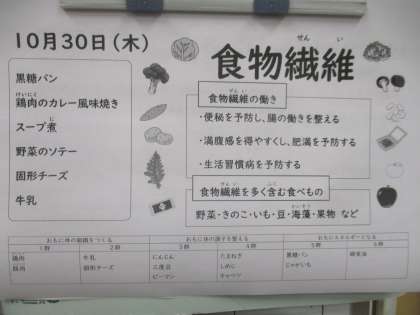 10月30日(木)
黒糖パン
けいにく
鶏肉のカレー風味焼き
に
スープ煮
野菜のソテー
固形チーズ
牛乳
せんい
食物繊維
せんい
食物繊維の働き
・便秘を予防し、腸の働きを整える
・満腹感を得やすくし、肥満を予防する
・生活習慣病を予防する
せんい ふく
食物繊維を多く含む食べもの
かいそう
野菜・きのこ・いも・豆・海藻・果物 など
おもに体の組織をつくる おもに体の調子を整える おもにエネルギーになる
1群 2群 3群 4群 5群 6群
鶏肉 牛乳 にんじん たまねぎ 黒糖パン
固形チーズ しめじ じゃがいも
ピーマン キャベツ